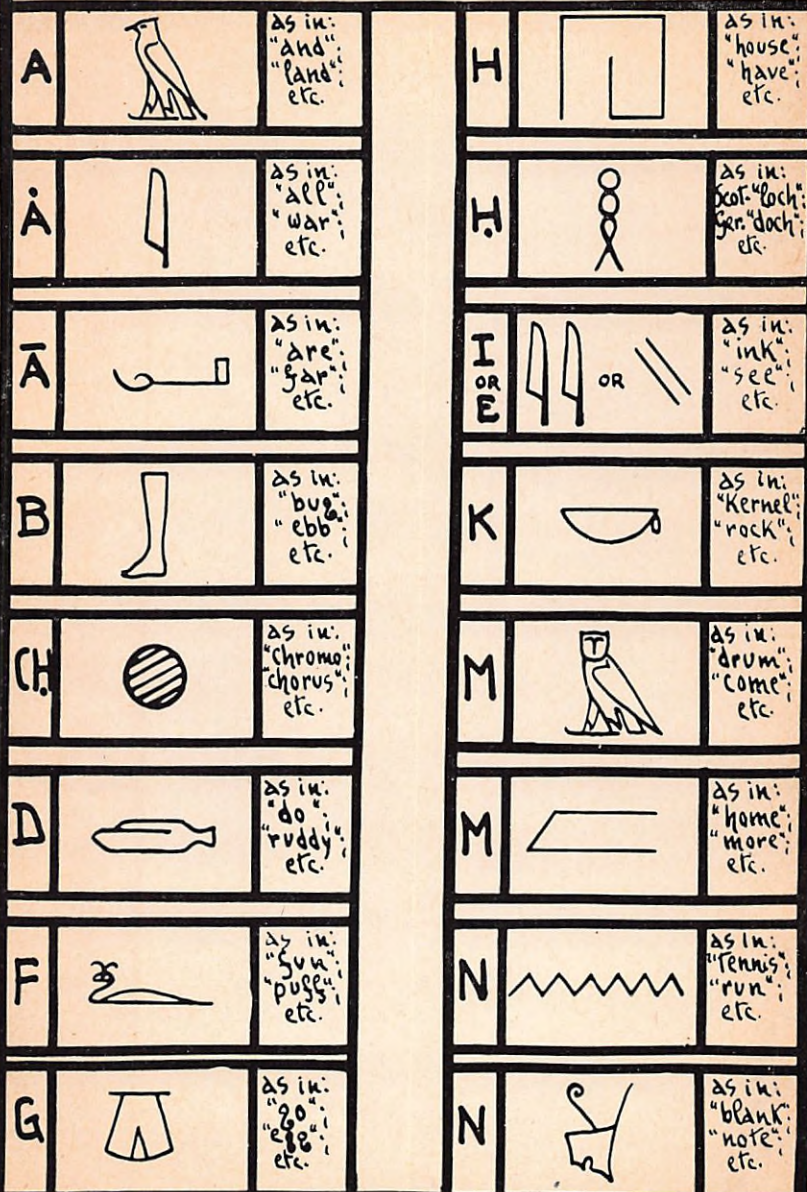 A
as in:
"and";
"land";
etc.
Ȧ
as in:
"all";
"war";
etc.
Ā
as in:
"are";
"far";
etc.
B
as in:
"bug";
"ebb";
etc.
CḤ
as in:
"chromo";
"chorus";
etc.
D
as in:
"do";
"ruddy";
etc.
F
as in:
"fun";
"puff";
etc.
G
as in:
"go";
"egg";
etc.
H
as in:
"house";
"have";
etc.
Ḥ
as in:
Scot. "loch";
Ger. "doch";
etc.
I
OR
E
OR
as in:
"ink";
"see";
etc.
K
as in:
"Kernel";
"rock";
etc.
M
as in:
"drum";
"come";
etc.
M
as in:
"home";
"more";
etc.
N
as in:
"Tennis";
"run";
etc.
N
as in:
"blank";
"note";
etc.